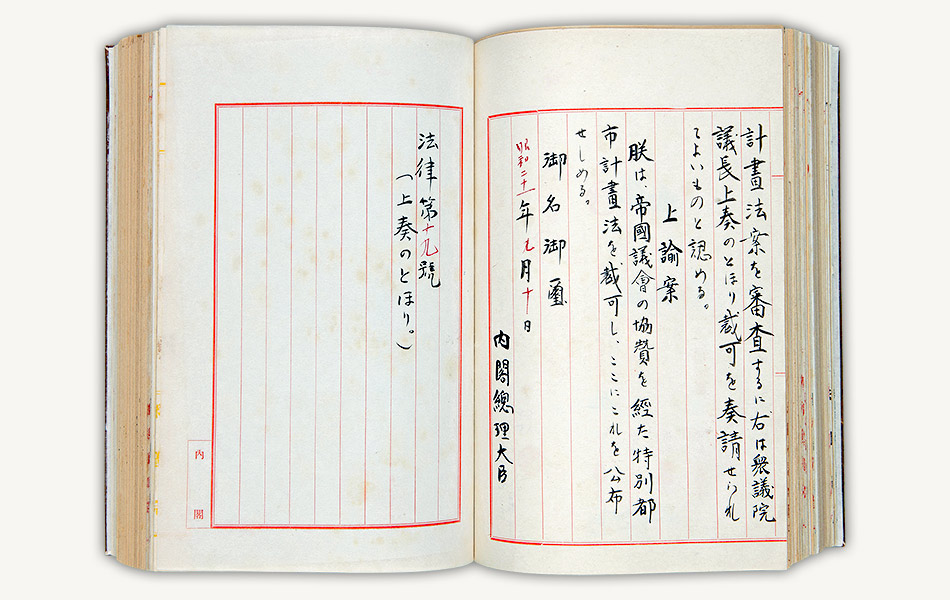 計畫法案を審査するに右は衆議院
議長上奏のとほり裁可を奏請せられ
てよいものと認める。
上諭案
朕は、帝國議會の協賛を経た特別都
市計畫法を裁可し、ここにこれを公布
せしめる。
御名御璽
昭和二十一年九月十日
内閣總理大臣
法律第十九號
(上奏のとほり。)
内閣